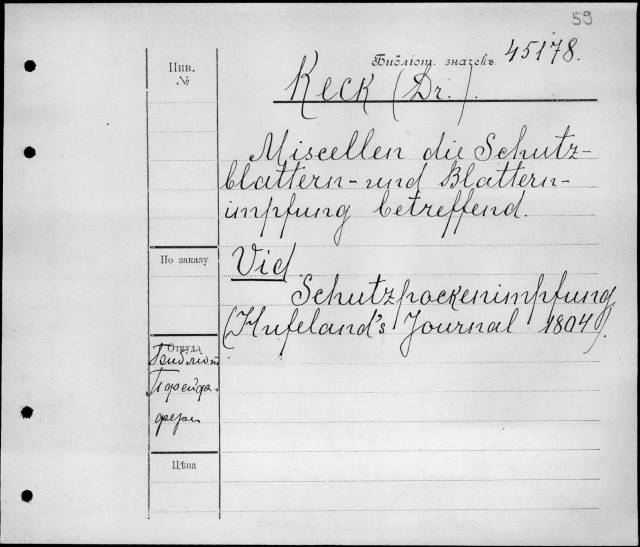 59
Библіот. значекъ 45178.
Инв.
№
Keck (Dr.).
Miscellen die Schutz-
blattern- und Blattern-
impfung betreffend.
По заказу
Vid
Schutzpockenimpfung
(Hufeland's Journal 1804).
Откуда
Библіот.
Цѣна